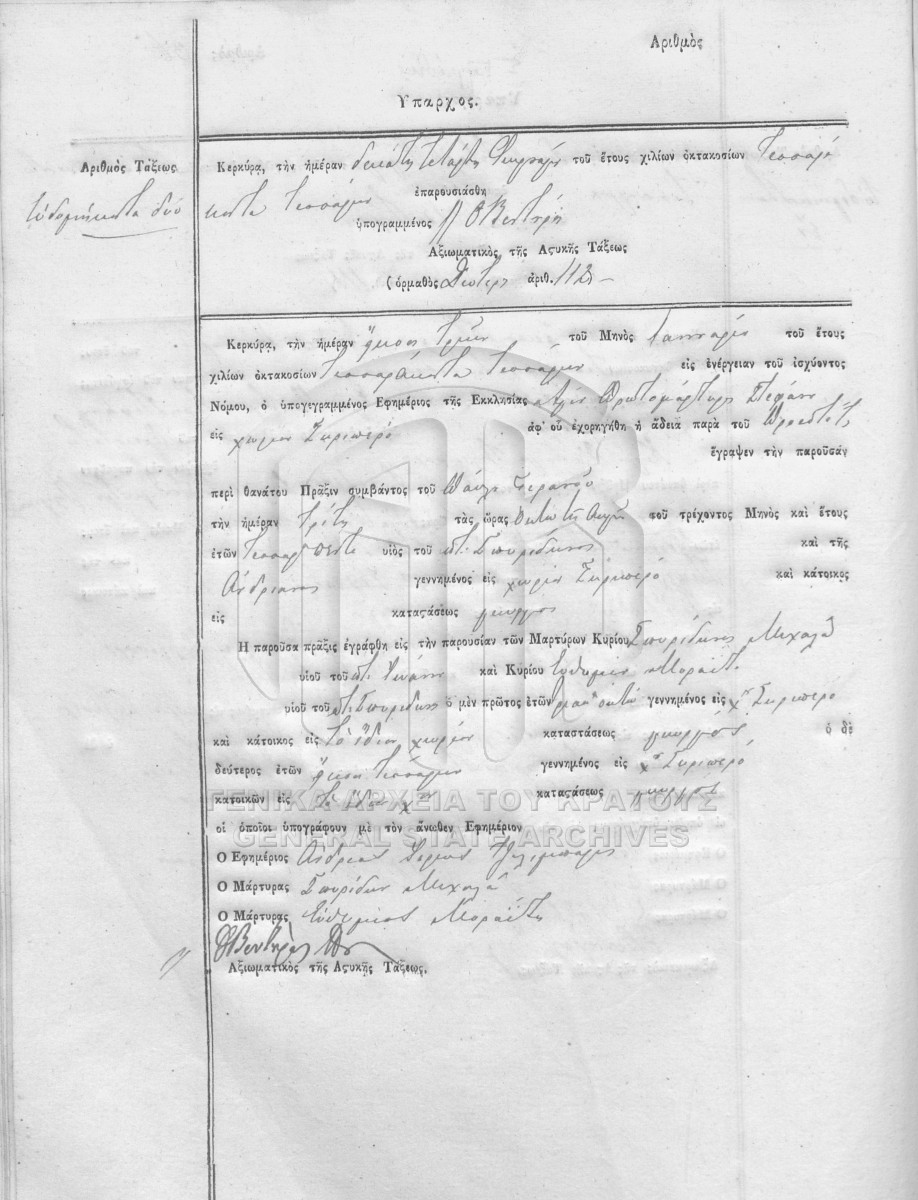 Αριθμὸς
Υπαρχος.
Αριθμὸς Τάξεως
ἑβδομήκοντα δύο
Κερκύρα, τὴν ἡμέραν δεκάτη τετάρτη τοῦ ἔτους χιλίων ὀκτακοσίων τεσσαρά
κοντα τεσσάρων ἐπαρουσιάσθη
ὑπογραμμένος
Αξιωματικὸς, τῆς Αςυκῆς Τάξεως
(ὁρμαθὸς ἀριθ. 112
Κερκύρα, τὴν ἡμέραν εἴκοσι τριῶν τοῦ Μηνὸς Ἰανναρίου τοῦ ἔτους
χιλίων ὀκτακοσίων τεσσαράκοντα τεσσάρων εἰς ἐνέργειαν τοῦ ἰσχύοντος
Νόμου, ὁ ὑπογεγραμμένος Εφημέριος τῆς Εκκλησίας ἁγίου Πρωτομάρτυρος Στεφάνου
εἰς χωρίον Σκριπερό ἀφ' οὗ ἐχορηγήθη ἡ ἄδεια παρὰ τοῦ
ἔγραψεν τὴν παροῦσαν
περὶ θανάτου Πρᾶξιν συμβάντος τοῦ
τὴν ἡμέραν τρίτη τὰς ὥρας ὀκτὼ τῆς αὐγῆς τοῦ τρίχοντος Μηνὸς καὶ ἔτους
ἐτῶν τεσσαρ πέντε υἱὸς τοῦ ποτ. Σπυρίδωνος καὶ τῆς
Ἀνδριανας γεννημένος εἰς χωρίον Σκριπερό καὶ κάτοικος
εἰς καταςάσεως γεωργος
Η παροῦσα πρᾶξις ἐγράφθη εἰς τὴν παρουσίαν τῶν Μαρτύρων Κυρίου Σπυρίδωνος Μιχαλᾶ
υἱοῦ τοῦ ποτ. Ἰωάννη καὶ Κυρίου Εὐθυμίου Μοραΐτη
υἱοῦ τοῦ ποτ. Σπυρίδωνος ὁ μὲν πρῶτος ἐτῶν γεννημένος εἰς χ. Σκριπερο
καὶ κάτοικος εἰς τὸ ἴδιον χωρίον καταστάσεως γεωργὸς ὁ δὲ
δεύτερος ἐτῶν εἴκοσι τεσσάρων γεννημένος εἰς χ. Σκριπερό
κατοικῶν εἰς τὸ ἴδιον χ. καταςάσεως γεωργος
οἱ ὁποῖοι ὑπογράφουν μὲ τὸν ἄνωθεν Εφημέριον
Ο Εφημέριος Ἀνδρεας
Ο Μάρτυρας Σπυρίδων Μιχαλᾶ
Ο Μάρτυρας Εὐθυμιος Μοραΐτη
Αξιωματικὸς τῆς Αςυκῆς Τάξεως.
ΓΕΝΙΚΑ ΑΡΧΕΙΑ ΤΟΥ ΚΡΑΤΟΥΣ
GENERAL STATE ARCHIVES